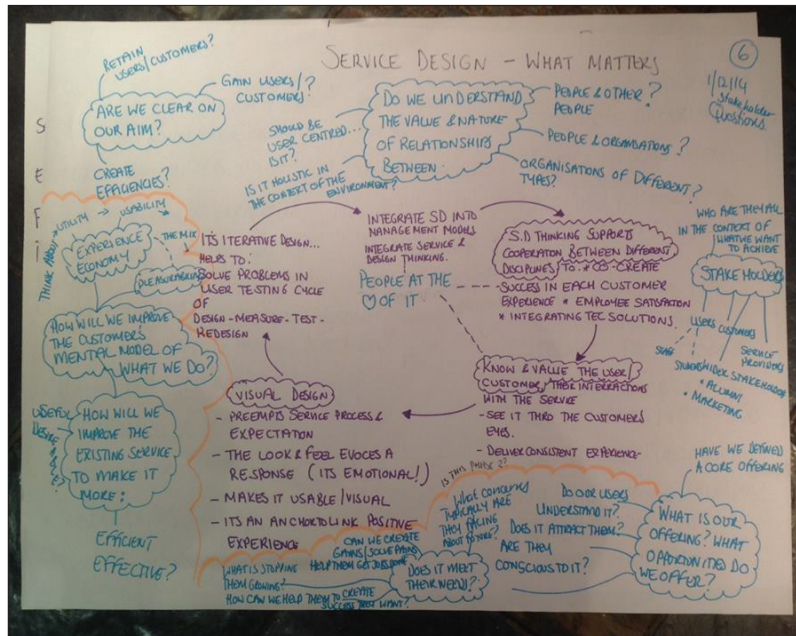 SERVICE DESIGN - WHAT MATTERS
6
1/12/14
Stakeholder
Questions
RETAIN
USERS/CUSTOMERS?
GAIN USERS/
CUSTOMERS?
ARE WE CLEAR ON
OUR AIM?
CREATE
EFFICIENCIES?
SHOULD BE
USER CENTRED...
IS IT?
IS IT HOLISTIC IN
THE CONTEXT OF THE
ENVIRONMENT?
DO WE UNDERSTAND
THE VALUE & NATURE
OF RELATIONSHIPS
BETWEEN
PEOPLE & OTHER?
PEOPLE
PEOPLE & ORGANISATIONS?
ORGANISATIONS OF DIFFERENT?
TYPES?
S
E
F
i
THINK ABOUT
UTILITY
USABILITY
THE MIX
PLEASURABLE
EXPERIENCE
ECONOMY
IT'S ITERATIVE DESIGN...
HELPS TO:
SOLVE PROBLEMS IN
USER TESTING CYCLE
OF
DESIGN-MEASURE-TEST-
REDESIGN
INTEGRATE SD INTO
MANAGEMENT MODELS
INTEGRATE SERVICE &
DESIGN THINKING.
PEOPLE AT THE
♡ OF IT
S.D THINKING SUPPORTS
COOPERATION BETWEEN DIFFERENT
DISCIPLINES TO: * CO-CREATE
SUCCESS IN EACH CUSTOMER
EXPERIENCE * EMPLOYEE SATISFACTION
* INTEGRATING TEC SOLUTIONS.
WHO ARE THEY ALL
IN THE CONTEXT OF
WHAT WE WANT
TO ACHIEVE
STAKEHOLDERS
USERS
CUSTOMERS
STAFF
STUDENTS
SERVICE
PROVIDERS
WIDER STAKEHOLDERS
• ALUMNI
• MARKETING
HOW WILL WE IMPROVE
THE CUSTOMER'S
MENTAL MODEL OF
WHAT WE DO?
KNOW & VALUE THE USER/
CUSTOMER, THEIR INTERRACTIONS
WITH THE SERVICE
- SEE IT THRO THE CUSTOMERS
EYES.
- DELIVER CONSISTENT EXPERIENCE
VISUAL DESIGN
- PREEMPTS SERVICE PROCESS &
EXPECTATION
- THE LOOK & FEEL EVOCES A
RESPONSE (ITS EMOTIONAL!)
- MAKES IT USABLE/VISUAL
- ITS AN ANCHOR TO LINK POSITIVE
EXPERIENCE
USEFUL
HOW WILL WE
IMPROVE THE
EXISTING SERVICE
TO MAKE IT
MORE:
EFFICIENT
EFFECTIVE?
IS THIS PHASE 2?
WHAT CONCERNS
TYPICALLY ARE
THEY FACING
ABOUT FUTURE?
CAN WE CREATE
GAINS/SOLVE PAINS
HELP THEM GET JOBS DONE
WHAT IS STOPPING
THEM GROWING?
HOW CAN WE HELP THEM TO CREATE
SUCCESS THEY WANT?
DOES IT MEET
THEIR NEEDS?
DO OUR USERS
UNDERSTAND IT?
DOES IT ATTRACT THEM?
ARE THEY
CONSCIOUS TO IT?
HAVE WE DEFINED
A CORE OFFERING
WHAT IS OUR
OFFERING? WHAT
OPPORTUNITIES DO
WE OFFER?